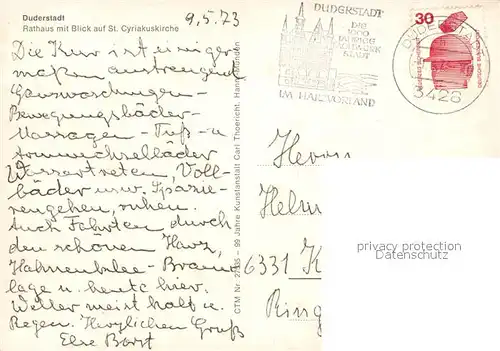 Duderstadt
Rathaus mit Blick auf St. Cyriakuskirche
9.5.73
Die Kur ist einiger
maßen anstrengend
Ganzwaschungen-
Bewegungsbäder-
Massagen - Fuß- u
Armwechselbäder
Wassertreten, Voll-
bäder usw. Spazie-
rengehen, ruhen.
Auch Fahrten durch
den schönen Harz,
Hahnenklee - Braun
lage u. heute hier.
Wetter meist kalt u.
Regen. Herzlichen Gruß
Else Borst
CTM Nr. 99 Jahre Kunstanstalt Carl Thoericht, Hann. Münden
DUDERSTADT
DIE
1000
JÄHRIGE
FACHWERK
STADT
IM HARZVORLAND
DUDERSTADT
3428
30
DEUTSCHE BUNDESPOST
Herrn
Helm
6331 K
Ring
privacy protection
AnsichtskartenCenter.com